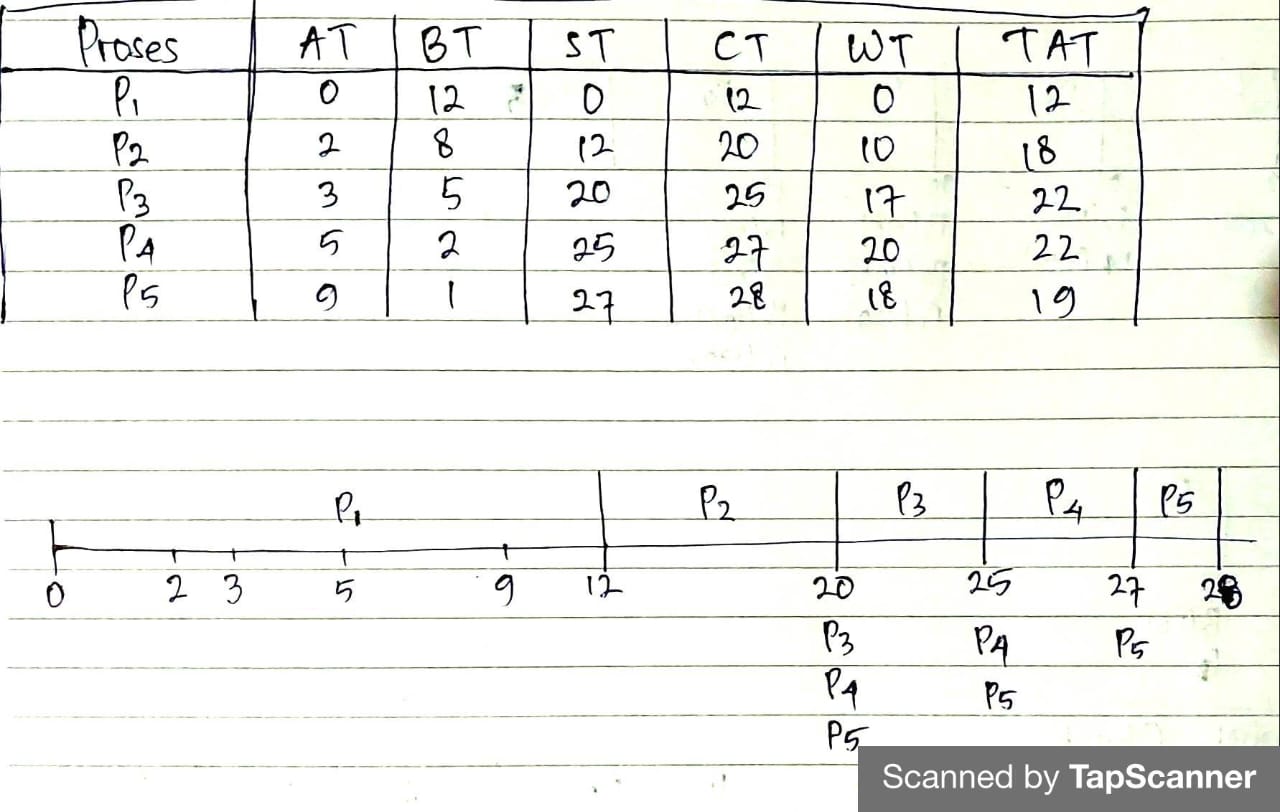 Proses AT BT ST CT WT TAT
P1 0 12 0 12 0 12
P2 2 8 12 20 10 18
P3 3 5 20 25 17 22
P4 5 2 25 27 20 22
P5 9 1 27 28 18 19
P1 P2 P3 P4 P5
0 2 3 5 9 12 20 25 27 28
P3 P4 P5
P4 P5
P5
Scanned by TapScanner